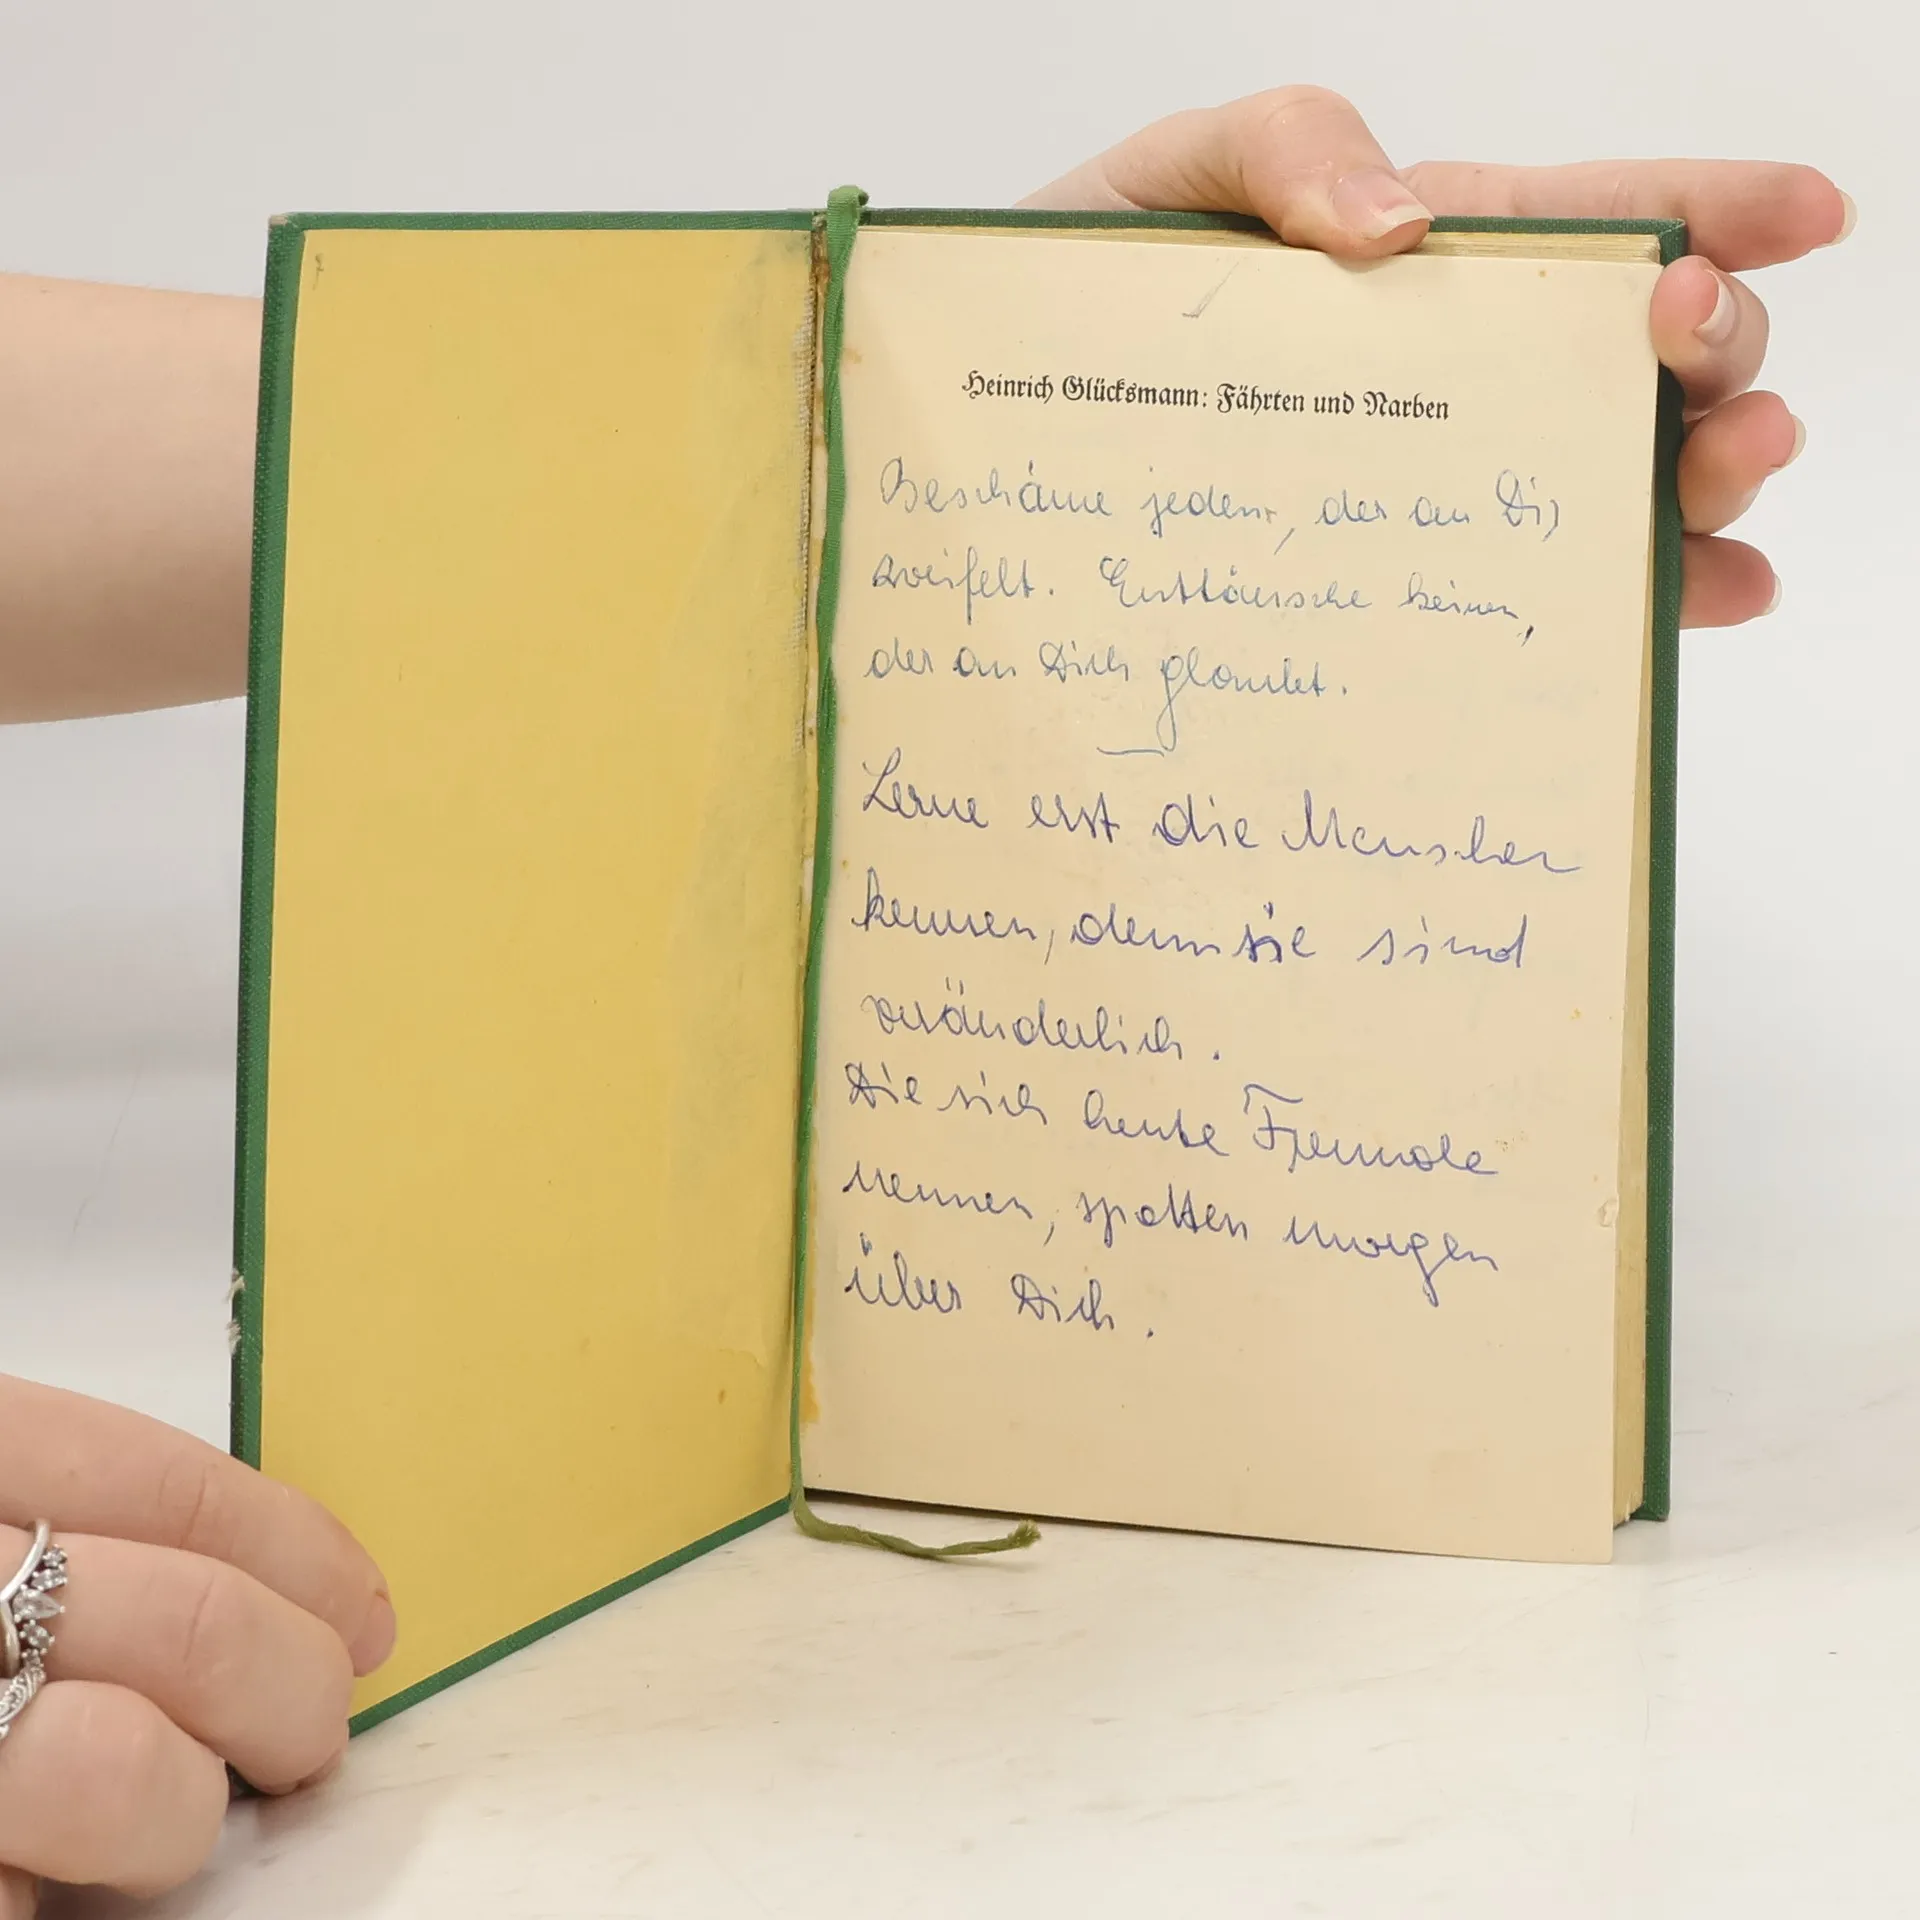 Heinrich Glücksmann: Fährten und Narben
Beschäme jeden, der an Dir
zweifelt. Enttäusche keinen,
der an Dich glaubt.
Lerne erst die Menschen
kennen, denn sie sind
veränderlich.
Die sich heute Freunde
nennen, spotten morgen
über Dich.